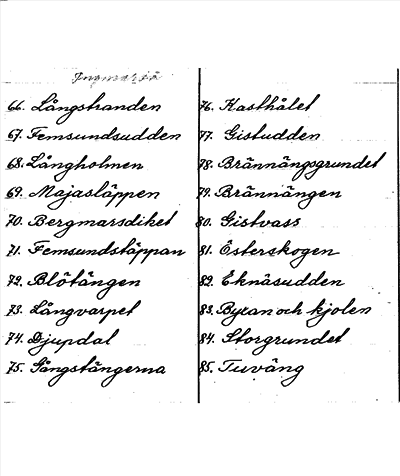 66. Långstranden
67. Femsundsudden
68. Långholmen
69. Majasläppen
70. Bergmansdiket
71. Femsundstäppan
72. Blötängen
73. Långvarpet
74. Djupdal
75. Sångstängerna
76. Kasthålet
77. Gistudden
78. Brännängsgrundet
79. Brännängen
80. Gistvass
81. Österskogen
82. Eknäsudden
83. Byxan och kjolen
84. Storgrundet
85. Tuväng